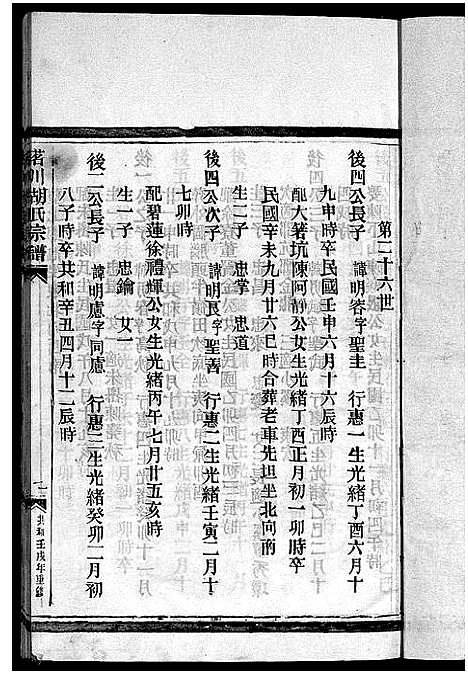 第二十六世
後四公長子 諱明睿字聖圭 行惠一生光緒丁酉六月十
九申時卒民國壬申六月十六辰時
配大箬坑陳阿靜公女生光緒丁酉正月初一卯時卒
民國辛未九月廿六巳時合葬老車先坦坐北向南
生二子 忠掌 忠道
後四公次子 諱明良字聖善 行惠二生光緒壬寅二月十
七卯時
配碧蓮徐禮輝公女生光緒丙午七月廿五亥時
生一子 忠鑰 女一
後二公長子 諱明處字同處 行惠二生光緒癸卯二月初
八子時卒共和辛丑四月十二辰時
箬川胡氏宗譜
共和壬戌年重修